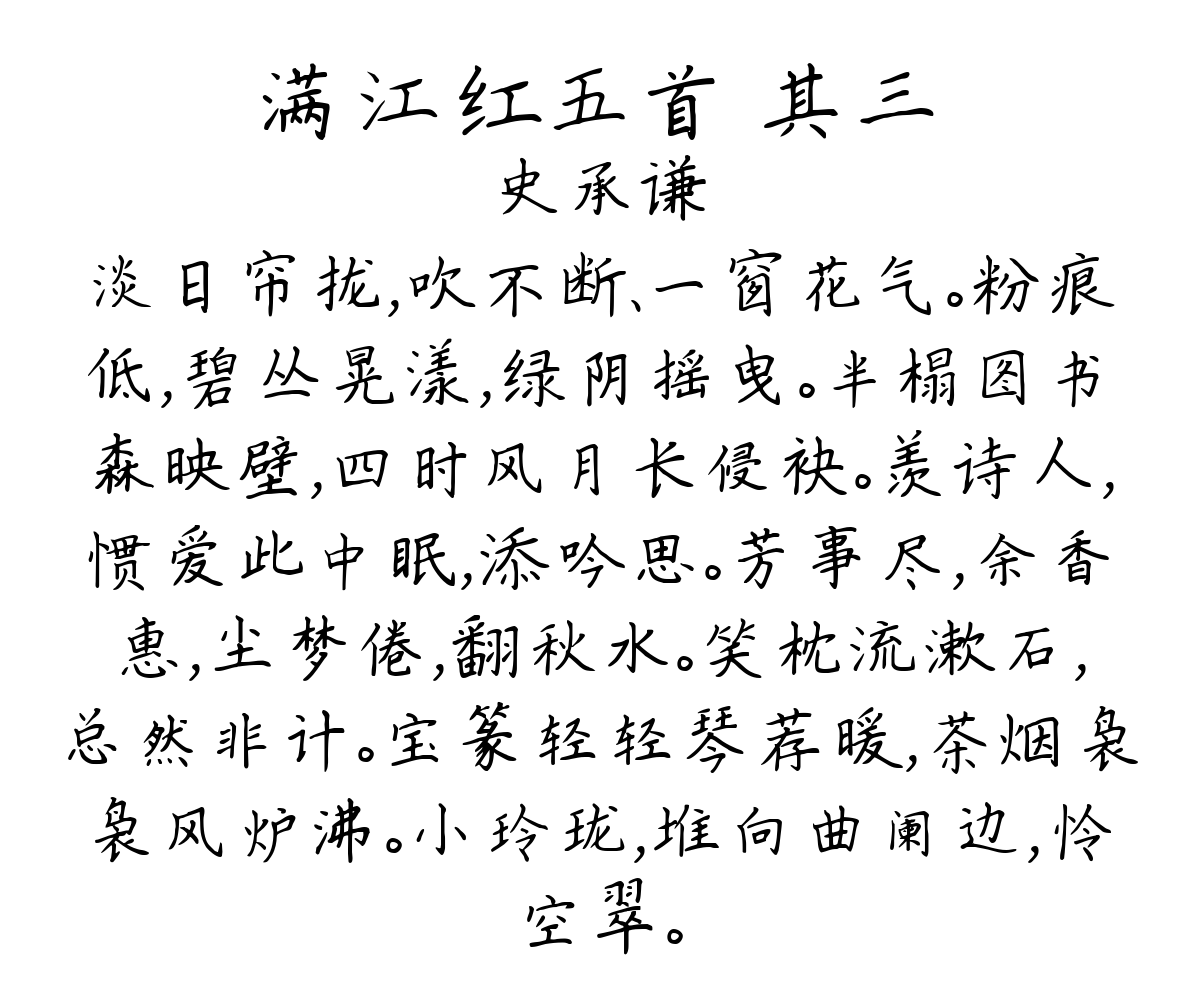 满江红五首 其三
史承谦
淡日帘拢,吹不断、一窗花气。粉痕
低,碧丛晃漾,绿阴摇曳。半榻图书
森映壁,四时风月长侵袂。羡诗人,
惯爱此中眠,添吟思。芳事尽,余香
惠,尘梦倦,翻秋水。笑枕流漱石,
总然非计。宝篆轻轻琴荐暖,茶烟袅
袅风炉沸。小玲珑,堆向曲阑边,怜
空翠。